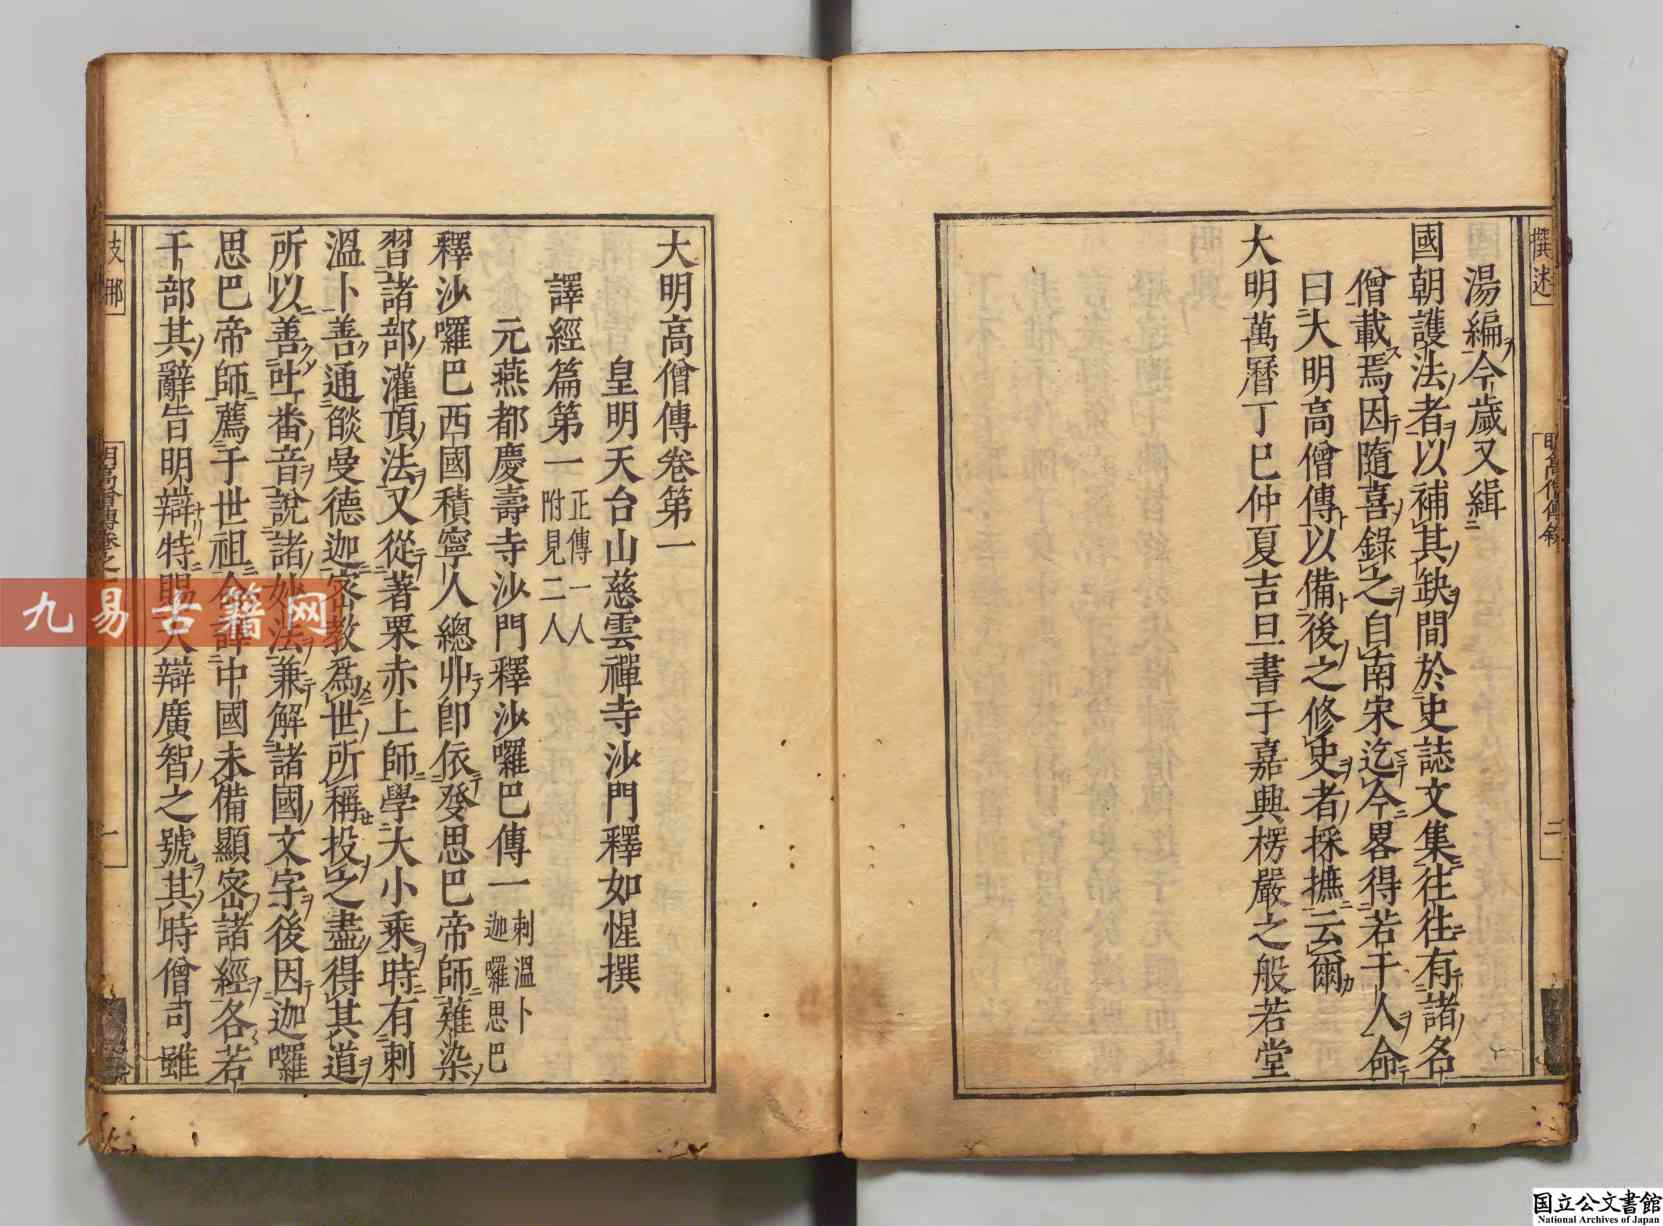 撰述
湯編今歲又緝
國朝護法者以補其缺間於史誌文集往往有諸名
僧載焉因隨喜錄之自南宋迄今畧得若干人命
曰大明高僧傳以備後之修史者採摭云爾
大明萬曆丁巳仲夏吉旦書于嘉興楞嚴之般若堂
大明高僧傳卷第一
皇明天台山慈雲禪寺沙門釋如惺撰
譯經篇第一正傳一人附見二人
元燕都慶壽寺沙門釋沙囉巴傳一刺溫卜迦囉思巴
釋沙囉巴西國積寧人總丱即依癹思巴帝師薙染
習諸部灌頂法又從著栗赤上師學大小乘時有刺
溫卜善通燄曼德迦密教為世所稱投之盡得其道
所以善吐番音說諸妙法兼解諸國文字後因迦囉
思巴帝師薦于世祖命譯中國未備顯密諸經各若
干部其辭旨明辯特賜大辯廣智之號其時僧司雖
九易古籍网
国立公文書館
National Archives of Japan